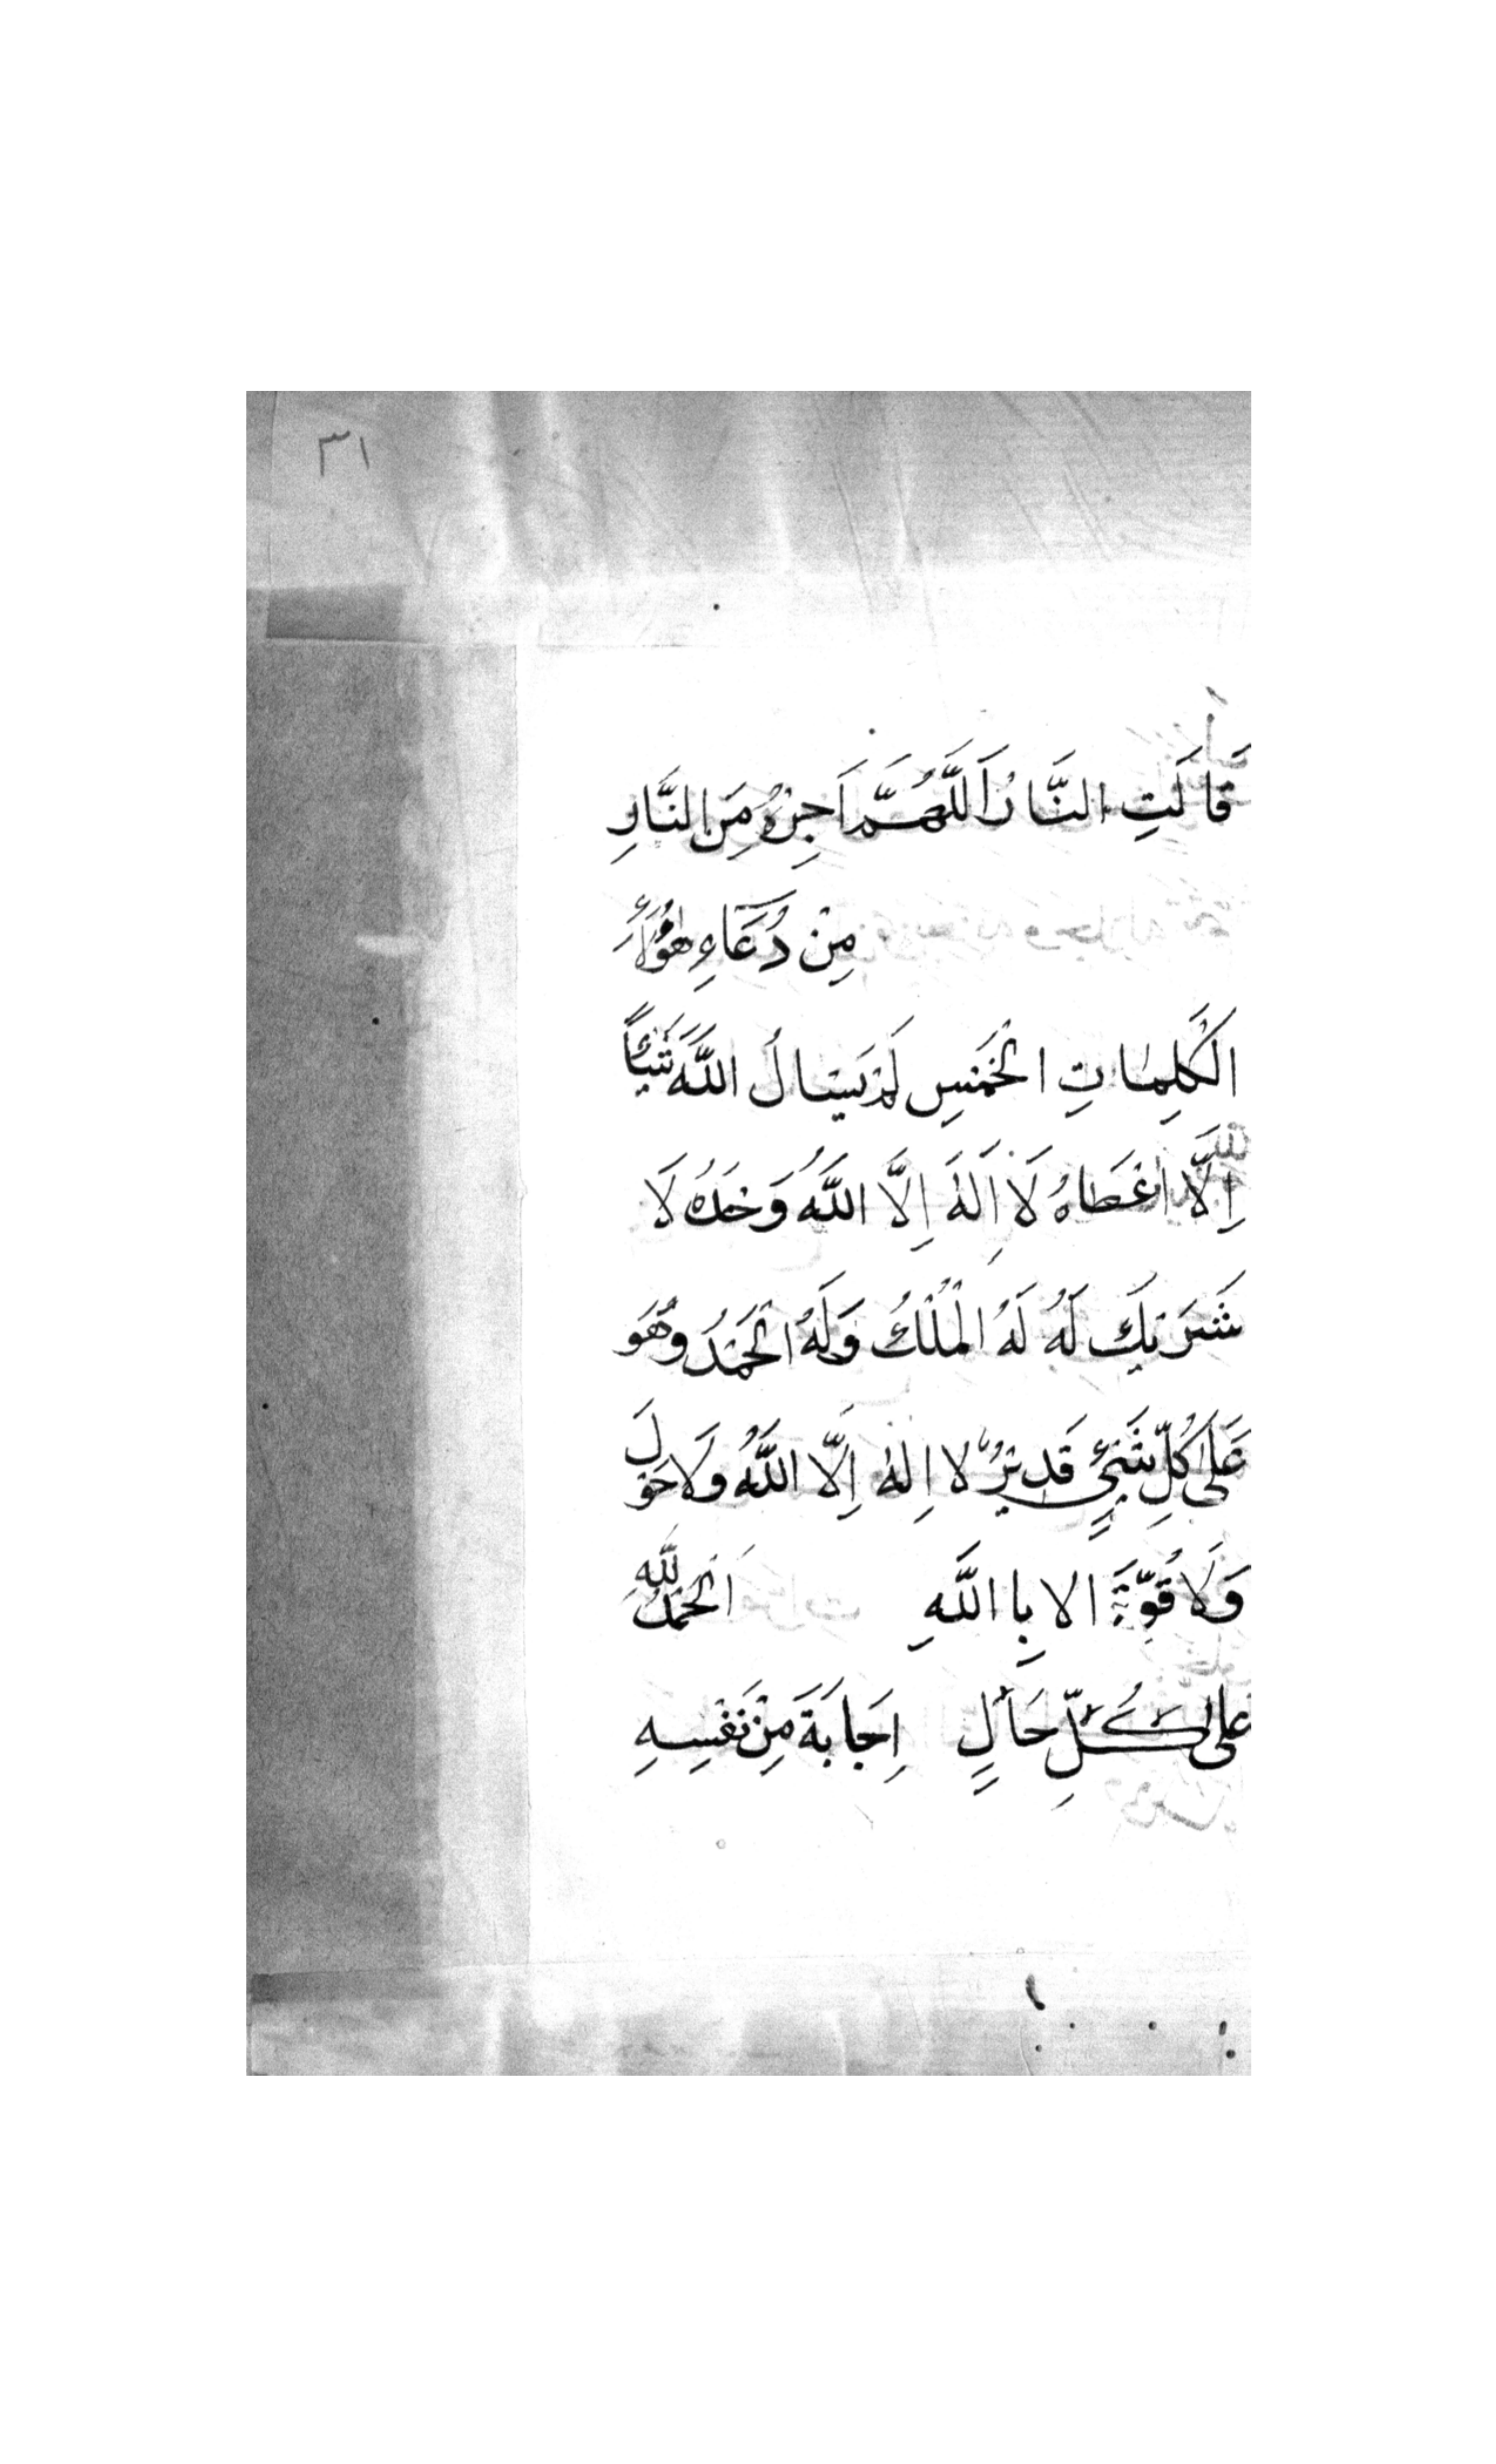 ٣١
قَالَتِ النَّارُ اَللّٰهُمَّ اَجِرْهُ مِنَ النَّارِ
مِنْ دُعَاءِ هٰؤُلَاءِ
الْكَلِمَاتِ الْخَمْسِ لَمْ يَسْاَلُ اللّٰهَ شَيْئًا
اِلَّا اَعْطَاهُ لَا اِلٰهَ اِلَّا اللّٰهُ وَحْدَهُ لَا
شَرِيكَ لَهُ لَهُ الْمُلْكُ وَلَهُ الْحَمْدُ وَهُوَ
عَلَى كُلِّ شَيْءٍ قَدِيرٌ لَا اِلٰهَ اِلَّا اللّٰهُ وَلَا حَوْلَ
وَلَا قُوَّةَ الا بِاللّٰهِ اَلْحَمْدُ لِلّٰهِ
عَلَى كُلِّ حَالٍ اِجَابَةَ مِنْ نَفْسِهِ